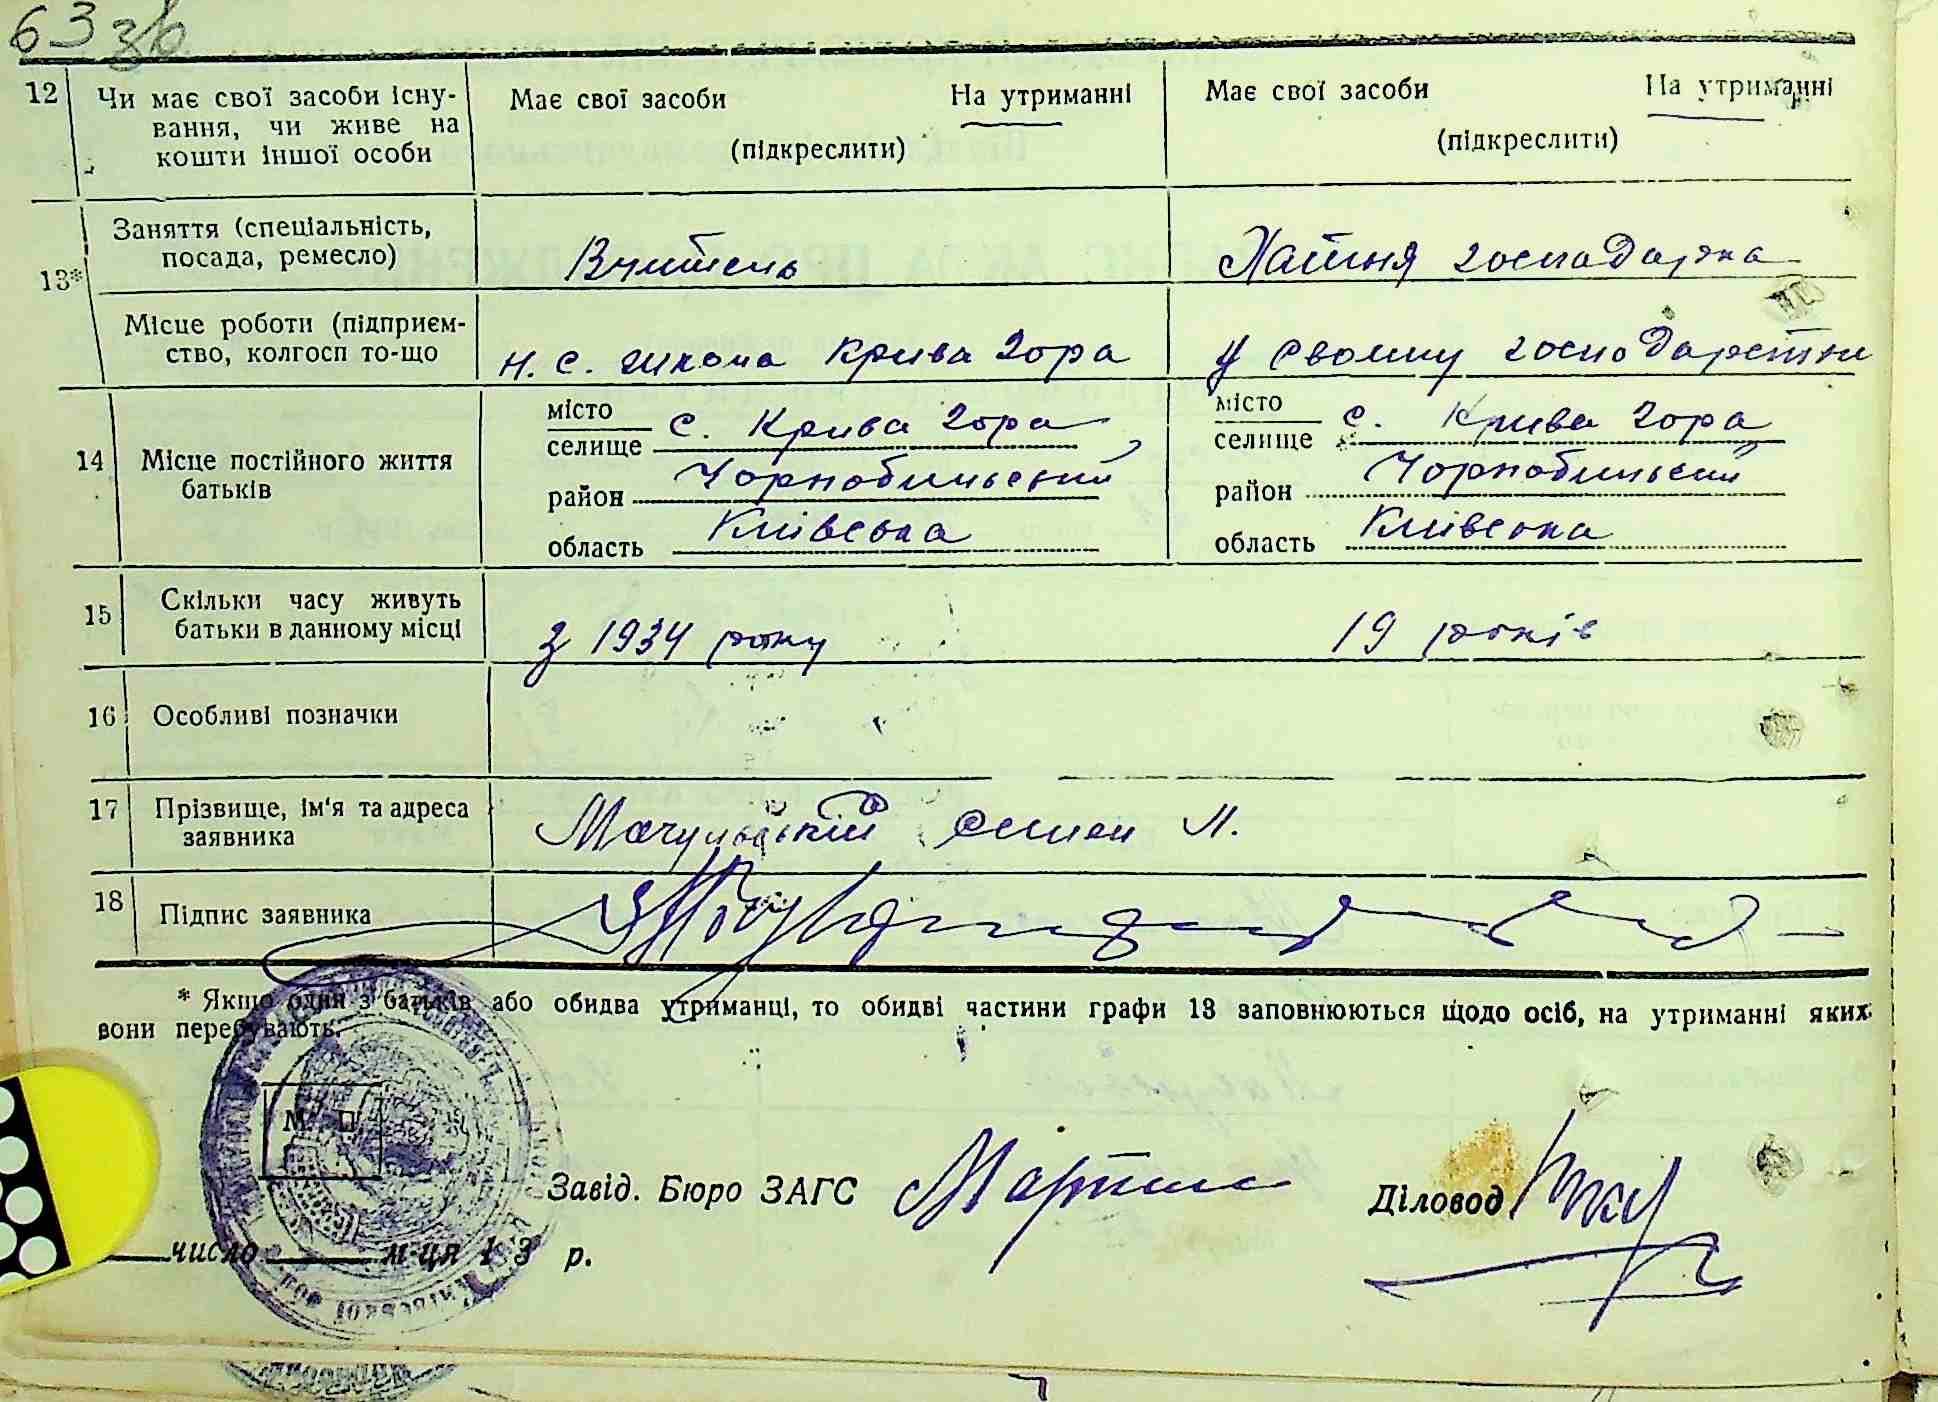 63 зв
12 Чи має свої засоби існу- Має свої засоби На утриманні Має свої засоби На утриманні
вання, чи живе на (підкреслити) (підкреслити)
кошти іншої особи
Заняття (спеціальність,
посада, ремесло) Вчитель Хатня господарка
13*
Місце роботи (підприєм-
ство, колгосп то-що н. с. школа Крива Гора у своїму господарстві
14 Місце постійного життя батьків
місто
селище с. Крива Гора
район Чорнобильський
область Київська
місто
селище с. Крива Гора
район Чорнобильский
область Київська
15 Скільки часу живуть
батьки в данному місці з 1934 року 19 років
16 Особливі позначки
17 Прізвище, ім'я та адреса
заявника Мачульський Семен Л.
18 Підпис заявника
* Якщо один з батьків або обидва утриманці, то обидві частини графи 13 заповнюються щодо осіб, на утриманні яких
вони перебувають.
М. П.
Завід. Бюро ЗАГС Діловод
число м-ця 193 р.
Київської обл.